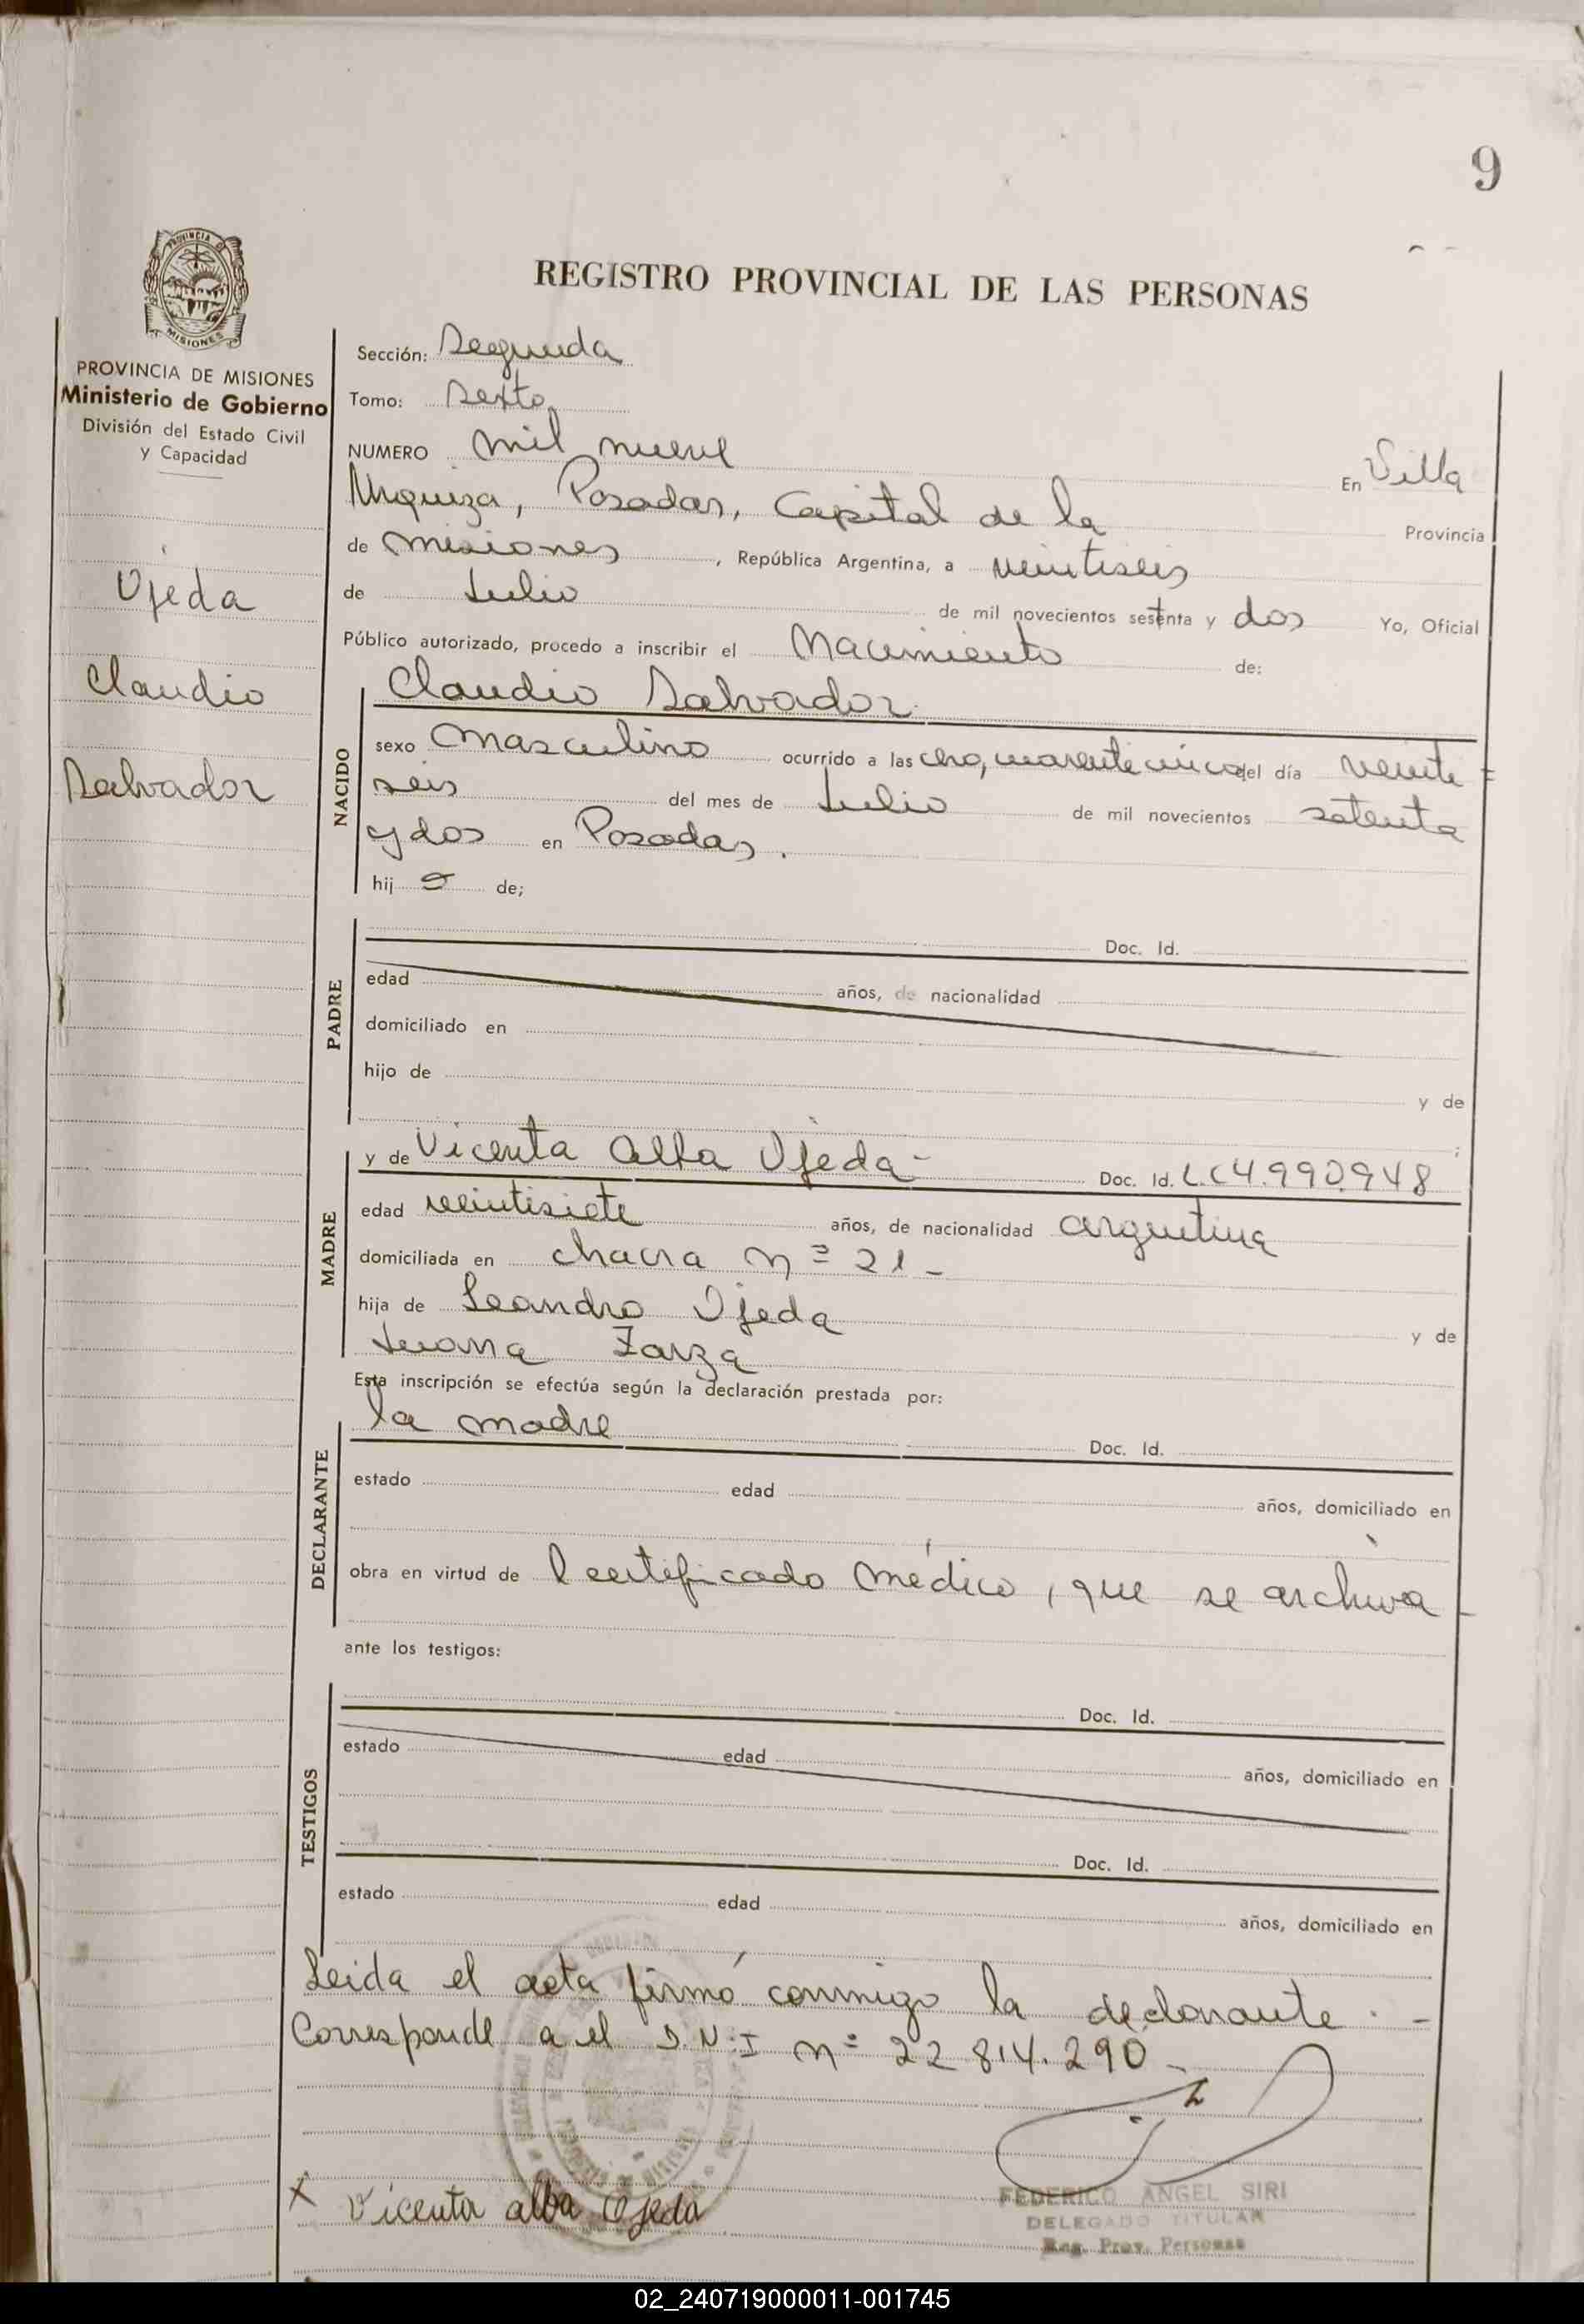 9
PROVINCIA DE
MISIONES
REGISTRO PROVINCIAL DE LAS PERSONAS
PROVINCIA DE MISIONES
Ministerio de Gobierno
División del Estado Civil
y Capacidad
Ojeda
Claudio
Salvador
Sección: Segunda
Tomo: Sexto
NUMERO mil nueve En Villa
Urquiza, Posadas, Capital de la Provincia
de Misiones, República Argentina, a veintiseis
de Julio de mil novecientos setenta y dos Yo, Oficial
Público autorizado, procedo a inscribir el Nacimiento de:
NACIDO
Claudio Salvador
sexo Masculino ocurrido a las cuarenta cinco del día veinti=
seis del mes de Julio de mil novecientos setenta
y dos en Posadas.
hijo de;
PADRE
Doc. Id.
edad años, de nacionalidad
domiciliado en
hijo de y de
MADRE
y de Vicenta Alba Ojeda- Doc. Id. L.C 4.990.948
edad veintisiete años, de nacionalidad argentina
domiciliada en chacra nº 21-
hija de Leandro Ojeda y de
Juana Zarza
Esta inscripción se efectúa según la declaración prestada por:
DECLARANTE
la madre Doc. Id.
estado edad años, domiciliado en
obra en virtud de l certificado médico, que se archiva-
ante los testigos:
TESTIGOS
Doc. Id.
estado edad años, domiciliado en
Doc. Id.
estado edad años, domiciliado en
Leida el acta firmó conmigo la declarante.-
Corresponde a el D.N.I nº 22.814.290-
x Vicenta alba Ojeda
FEDERICO ANGEL SIRI
DELEGADO TITULAR
Reg. Prov. Personas
02_240719000011-001745